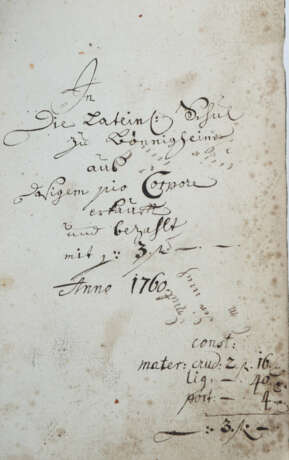 In
Die Latein: Schul
zu Bönnigheim
auß
dasigem pio Corpore
erkaufft
und bezahlt
mit 3 f. — . —
Anno 1760.
const:
mater: crud: 2 f. 16
lig: — . 40
port: — . 4
— : 3 f: —